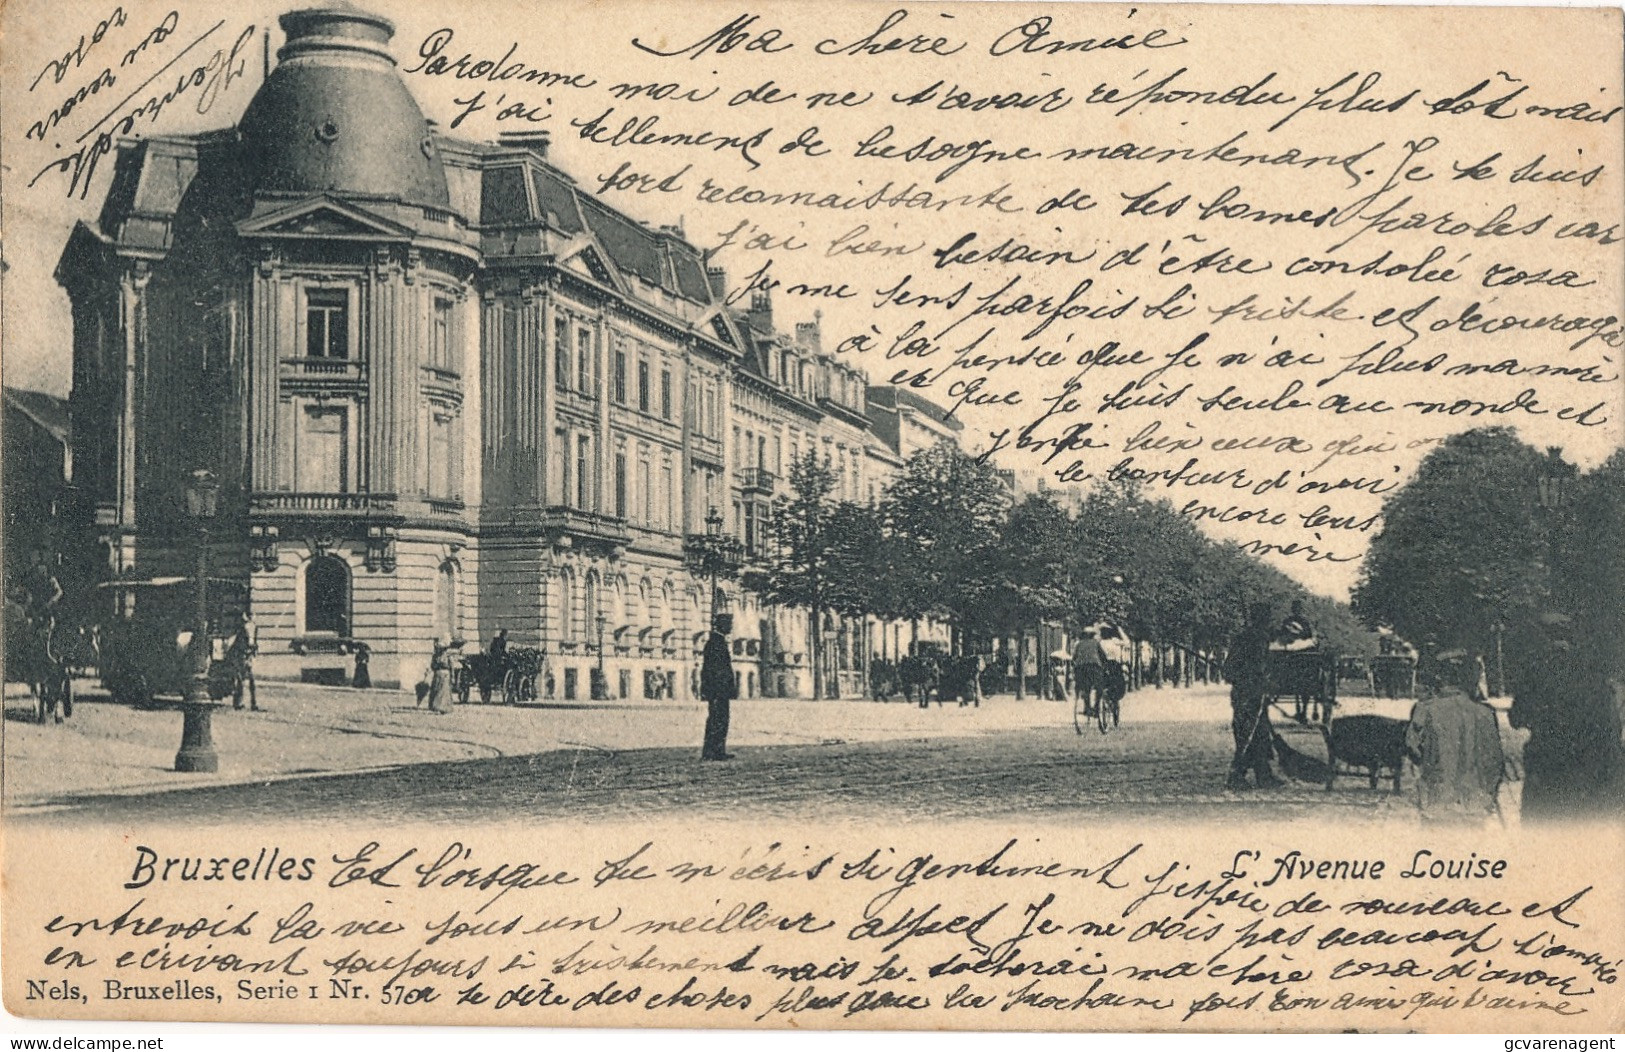 Ma chère Amie
Pardonne moi de ne t'avoir répondu plus tôt mais
j'ai tellement de besogne maintenant. Je te suis
fort reconnaissante de tes bonnes paroles car
j'ai bien besoin d'être consolée rosa
je me sens parfois si triste et découragée
à la pensée que je n'ai plus ma mère
et que je suis seule au monde et
j'envie bien ceux qui ont
le bonheur d'avoir
encore leurs
mère
Bruxelles
L'Avenue Louise
Et l'orsque tu m'écris si gentiment j'espère de nouveau et
entrevoit la vie sous un meilleur aspect Je ne dois pas beaucoup
en écrivant toujours si tristement mais je tâcherai ma chère rosa d'avoir
Nels, Bruxelles, Serie 1 Nr. 57
a te dire des choses plus que la prochaine fois ton amie qui t'aime
Henriette
au revoir
rosa
gcvarenagent